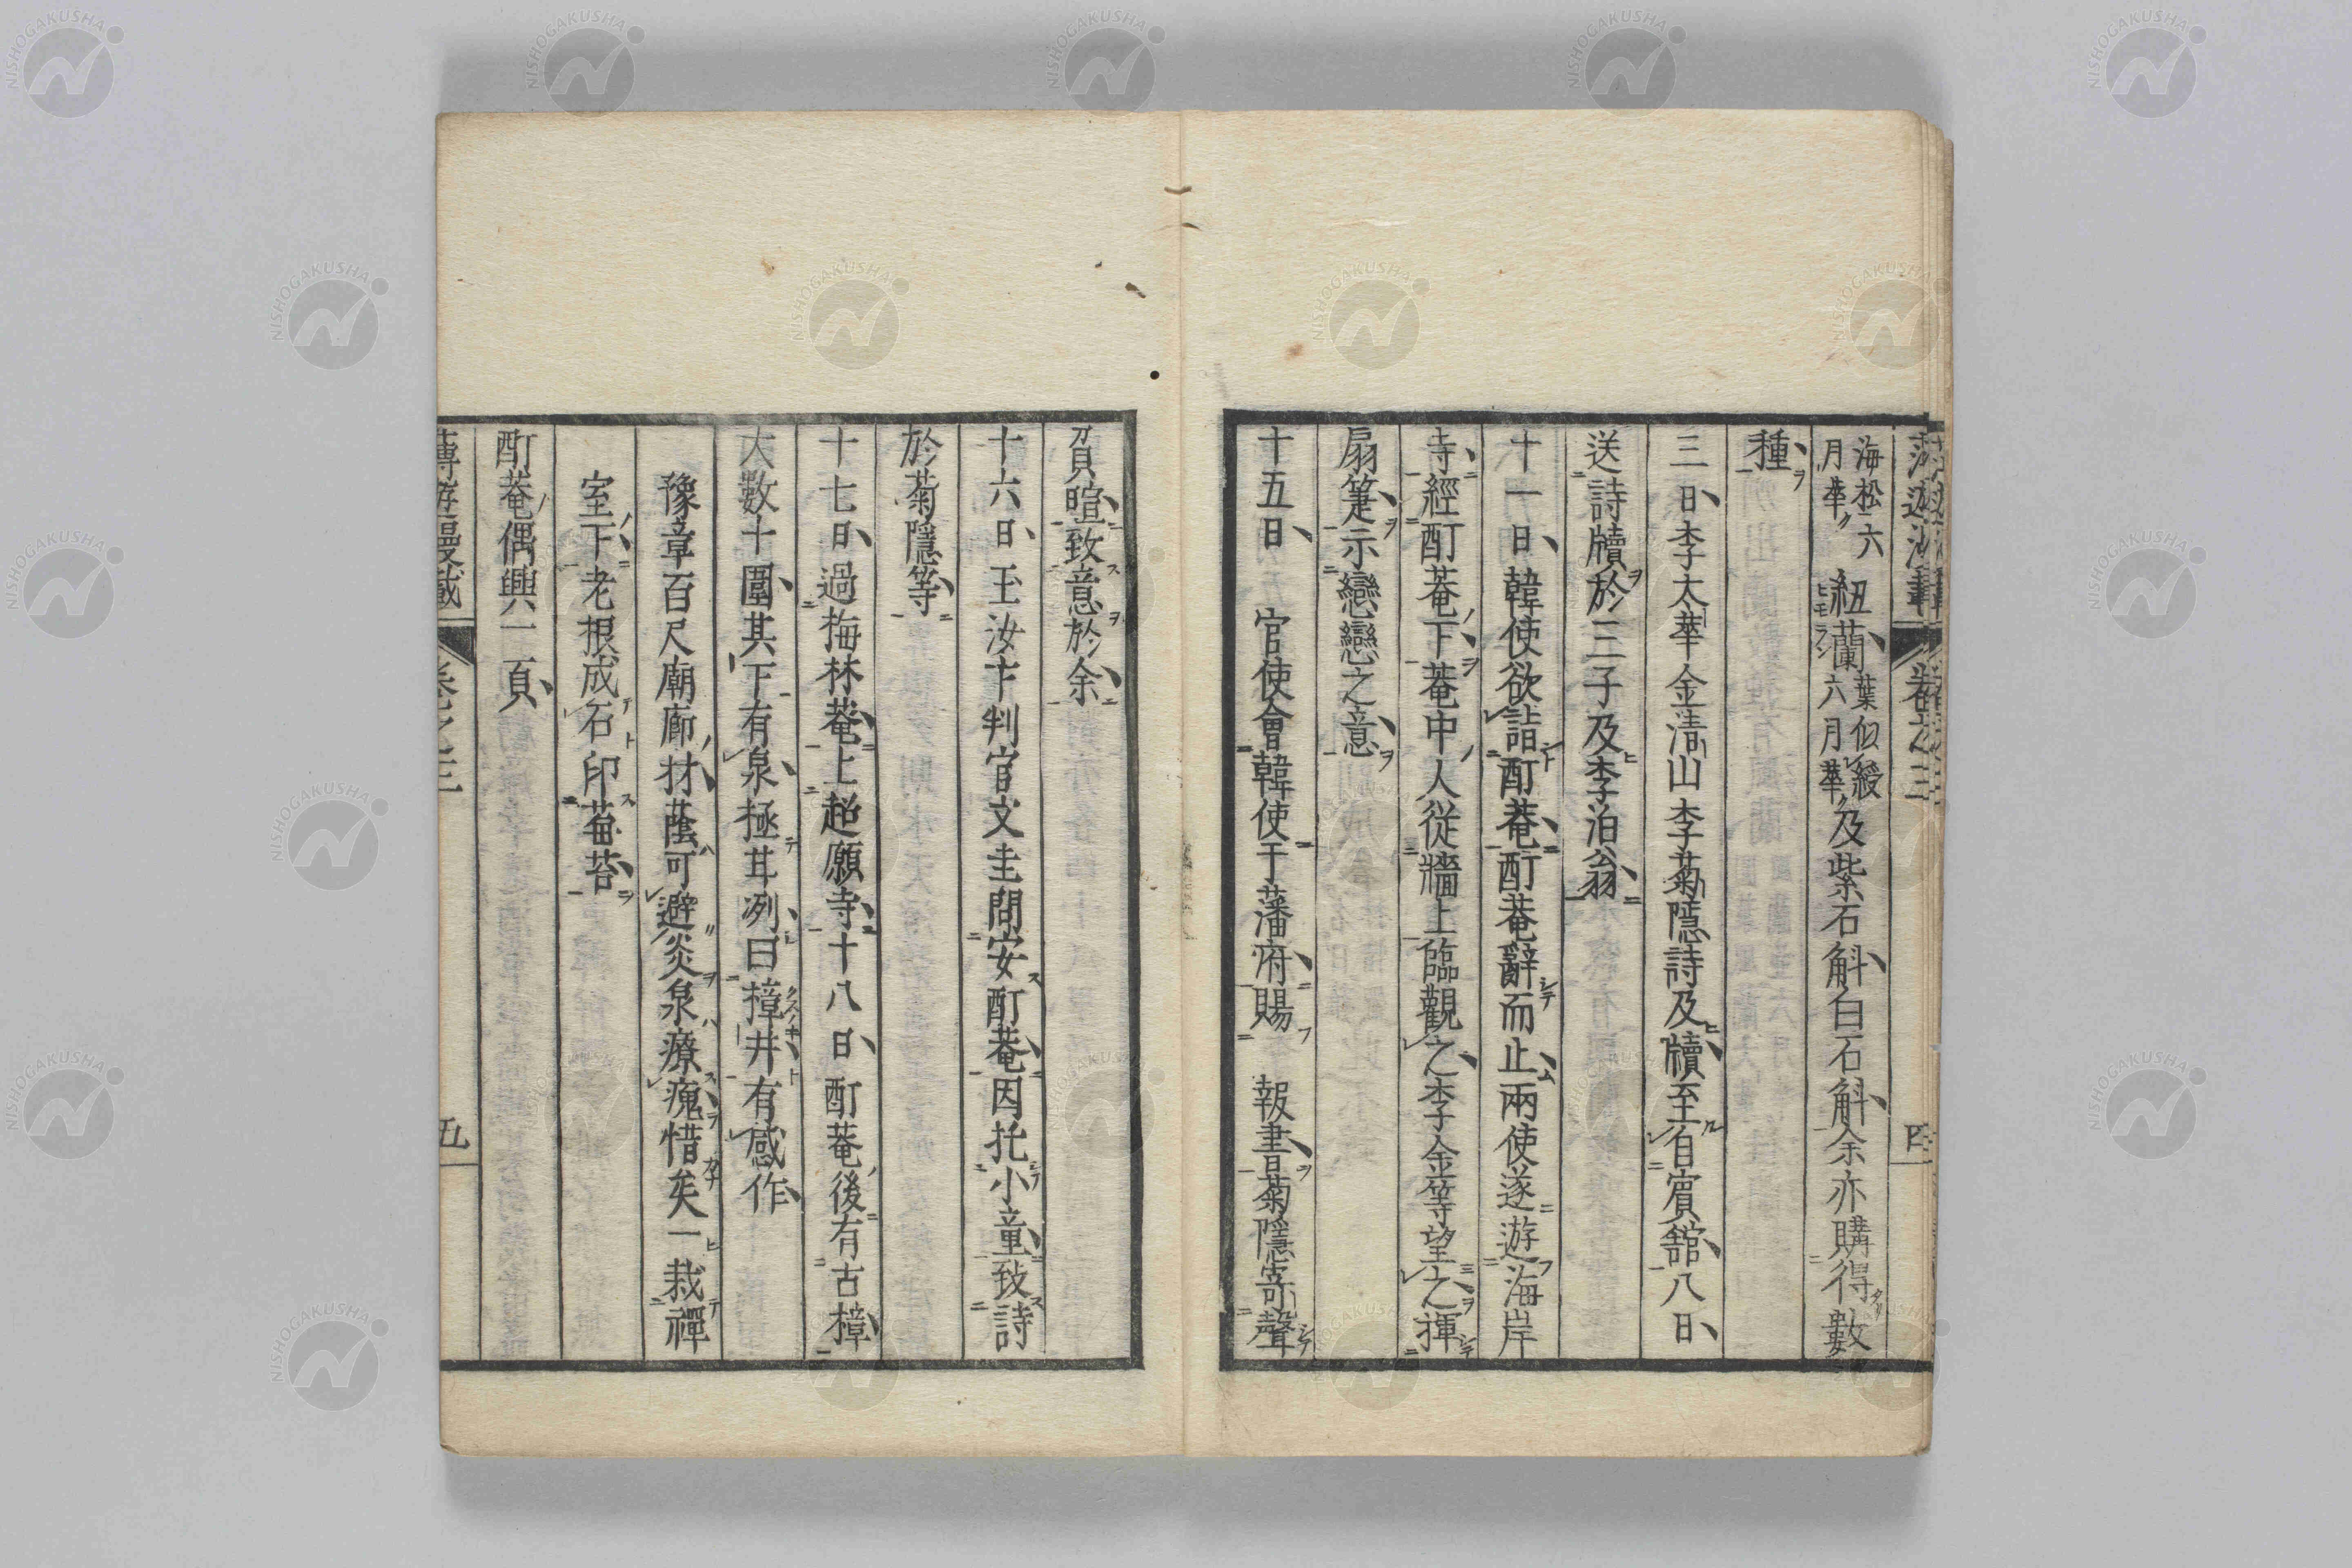 海松六月華紐蘭葉似綬六月華及紫石斛白石斛余亦購得數
種
三日李太華金清山李菊隱詩及牘至自賓館八日
送詩牘於三子及李泊翁
十一日韓使欲詣酊菴酊菴辭而止兩使遂遊海岸
寺經酊菴下菴中人從牆上臨觀之李金等望之揮
扇箑示戀戀之意
十五日 官使會韓使于藩府賜 報書菊隱寄聲
賀暄致意於余
十六日王汝卞判官文圭問安酊菴因托小童致詩
於菊隱等
十七日過梅林菴上超願寺十八日酊菴後有古樟
大數十圍其下有泉極甘冽曰樟井有感作
豫章百尺廟廊材蔭可避炎泉療瘣惜矣一栽禪
室下老根成石印莓苔
酊菴偶興二首
卷之三
五
卷之三
四